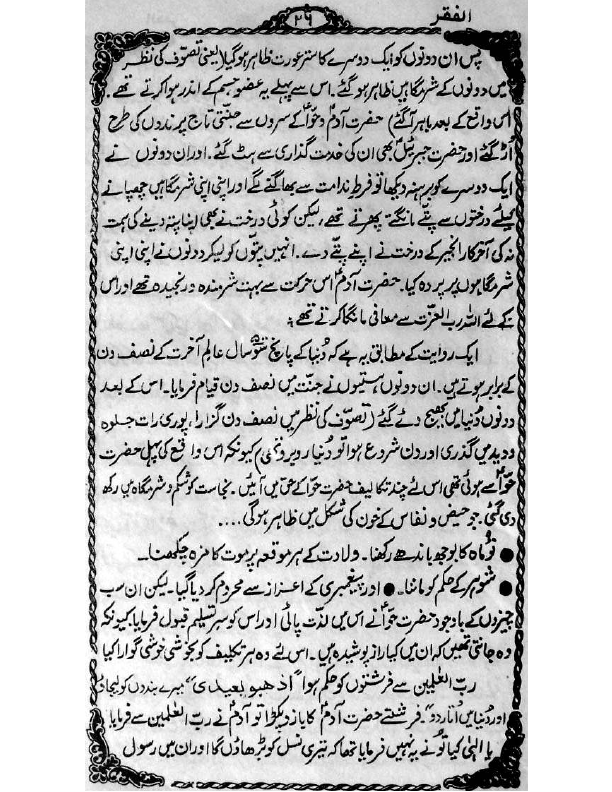 الفقر
۲۶
پس ان دونوں کو ایک دوسرے کا ستر عورت ظاہر ہوگیا (یعنی تصوف کی نظر
میں دونوں کے شرمگاہیں ظاہر ہو گئے۔ اس سے پہلے یہ عضو جسم کے اندر ہوا کرتے تھے۔
اس واقع کے بعد باہر آگئے) حضرت آدمؑ و حواؑ کے سروں سے جنتی تاج پرندوں کی طرح
اڑ گئے اور حضرت جبرئیلؑ بھی ان کی خدمت گذاری سے ہٹ گئے۔ اور ان دونوں نے
ایک دوسرے کو برہنہ دیکھا تو فرطِ ندامت سے بھاگتے گے اور اپنی اپنی شرمگاہیں چھپانے
کیلئے درختوں سے پتّے مانگتے پھرتے تھے، لیکن کوئی درخت نے بھی اپنا پتہ دینے کی ہمت
نہ کی آخر کار انجیر کے درخت نے اپنے پتّے دے۔ انہیں پتّوں کو لیکر دونوں نے اپنی اپنی
شرمگاہوں پر پردہ کیا۔ حضرت آدمؑ اس حرکت سے بہت شرمندہ و رنجیدہ تھے اور اس
کے لئے اللہ رب العزّت سے معافی مانگا کرتے تھے ؛
ایک روایت کے مطابق یہ ہے کہ دُنیا کے پانچ سو سال عالمِ آخرت کے نصف دن
کے برابر ہوتے ہیں۔ ان دونوں ہستیوں نے جنّت میں نصف دن قیام فرمایا۔ اس کے بعد
دونوں دُنیا میں بھیج دئے گئے (تصوّف کی نظر میں نصف دن گزارا، پوری رات جلوہ
و دید میں گذری اور دن شروع ہوا تو دُنیا روبرو تھی) کیونکہ اس واقع کی پہل حضرت
حوّاؑ سے ہوئی تھی اس لئے چند تکالیف حضرت حوّا کے حق میں آئیں۔ نجاست کو شکم و شرمگاہ میں رکھ
دی گئی۔ جو حیض و نفاس کے خون کی شکل میں ظاہر ہوگی ....
● نو ماہ کا بوجھ باندھے رکھنا۔ ولادت کے ہر موقعہ پر موت کا مزہ چکھنا۔
● شوہر کے حکم کو ماننا۔ ● اور پیغمبری کے اعزاز سے محروم کر دیا گیا۔ لیکن ان سب
چیزوں کے باوجود حضرت حوّاؑ نے اس میں لذّت پائی اور اس کو سرِ تسلیم قبول فرمایا، کیونکہ
وہ جانتی تھیں کہ ان میں کیا راز پوشیدہ ہیں۔ اس لئے وہ ہر تکلیف کو بخوشی خوشی گوارا کیا
ربّ العٰلمین سے فرشتوں کو حکم ہوا "اذھبو بعبدی" میرے بندوں کو لیجاؤ
اور دُنیا میں اُتار دو"۔ فرشتے حضرت آدمؑ کا بازو پکڑا تو آدمؑ نے ربّ العٰلمین سے فرمایا
یا الٰہی کیا تُو نے یہ نہیں فرمایا تھا کہ تیری نسل کو بڑھاؤں گا اور ان میں رسول